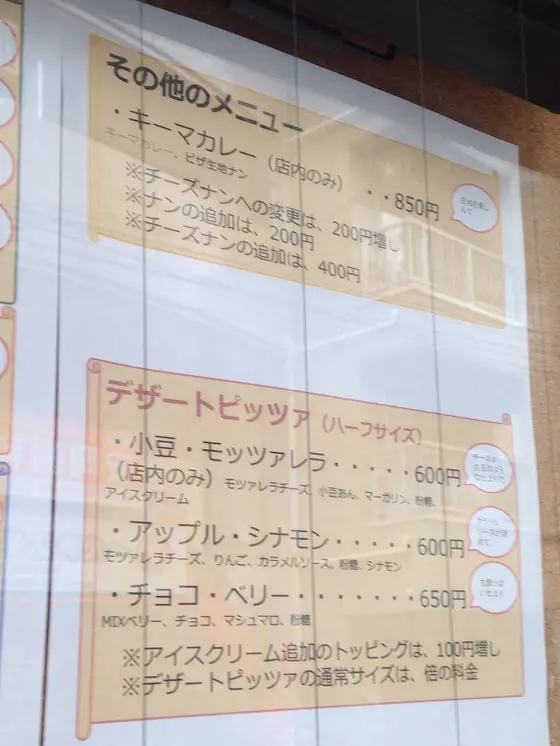 その他のメニュー
・キーマカレー（店内のみ）・・850円
キーマカレー、ピザ生地ナン
※チーズナンへの変更は、200円増し
※ナンの追加は、200円
※チーズナンの追加は、400円
デザートピッツァ（ハーフサイズ）
・小豆・モッツァレラ・・・・・600円
（店内のみ）モツァレラチーズ、小豆あん、マーガリン、粉糖、
アイスクリーム
・アップル・シナモン・・・・・600円
モツァレラチーズ、りんご、カラメルソース、粉糖、シナモン
・チョコ・ベリー・・・・・・・650円
MIXベリー、チョコ、マシュマロ、粉糖
※アイスクリーム追加のトッピングは、100円増し
※デザートピッツァの通常サイズは、倍の料金